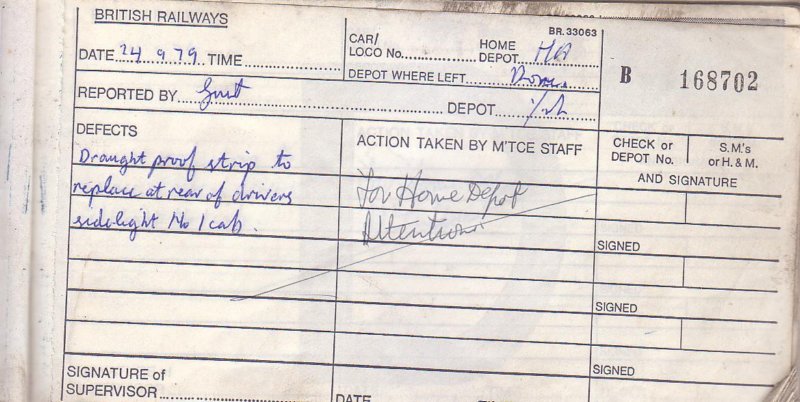 BRITISH RAILWAYS
BR. 33063
DATE 24.9.79 TIME
CAR/
LOCO No.
HOME
DEPOT
B 168702
DEPOT WHERE LEFT
REPORTED BY
DEPOT
DEFECTS
ACTION TAKEN BY M'TCE STAFF
CHECK or
DEPOT No.
S.M.'s
or H. & M.
AND SIGNATURE
Draught proof strip to
replace at rear of drivers
sidelight No 1 cab.
For Home Depot
Attention.
SIGNED
SIGNED
SIGNED
SIGNATURE of
SUPERVISOR
DATE